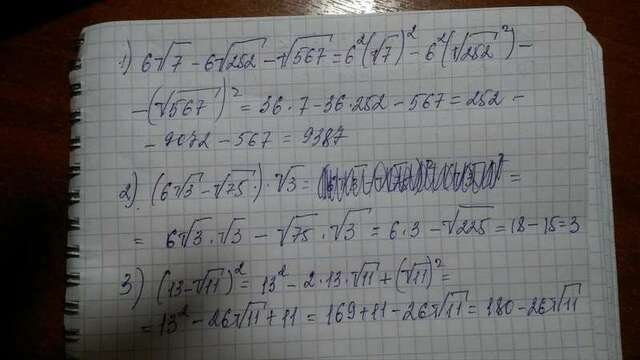 1) 6√7 - 6√252 - √567 = 6²(√7)² - 6²(√252²) -
- (√567)² = 36·7 - 36·252 - 567 = 252 -
- 9072 - 567 = 9387
2) (6√3 - √75)·√3 = =
= 6√3·√3 - √75·√3 = 6·3 - √225 = 18 - 15 = 3
3) (13 - √11)² = 13² - 2·13·√11 + (√11)² =
= 13² - 26√11 + 11 = 169 + 11 - 26√11 = 180 - 26√11